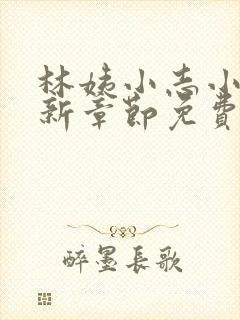 林姨小志小
新章節免費
醉墨長歌